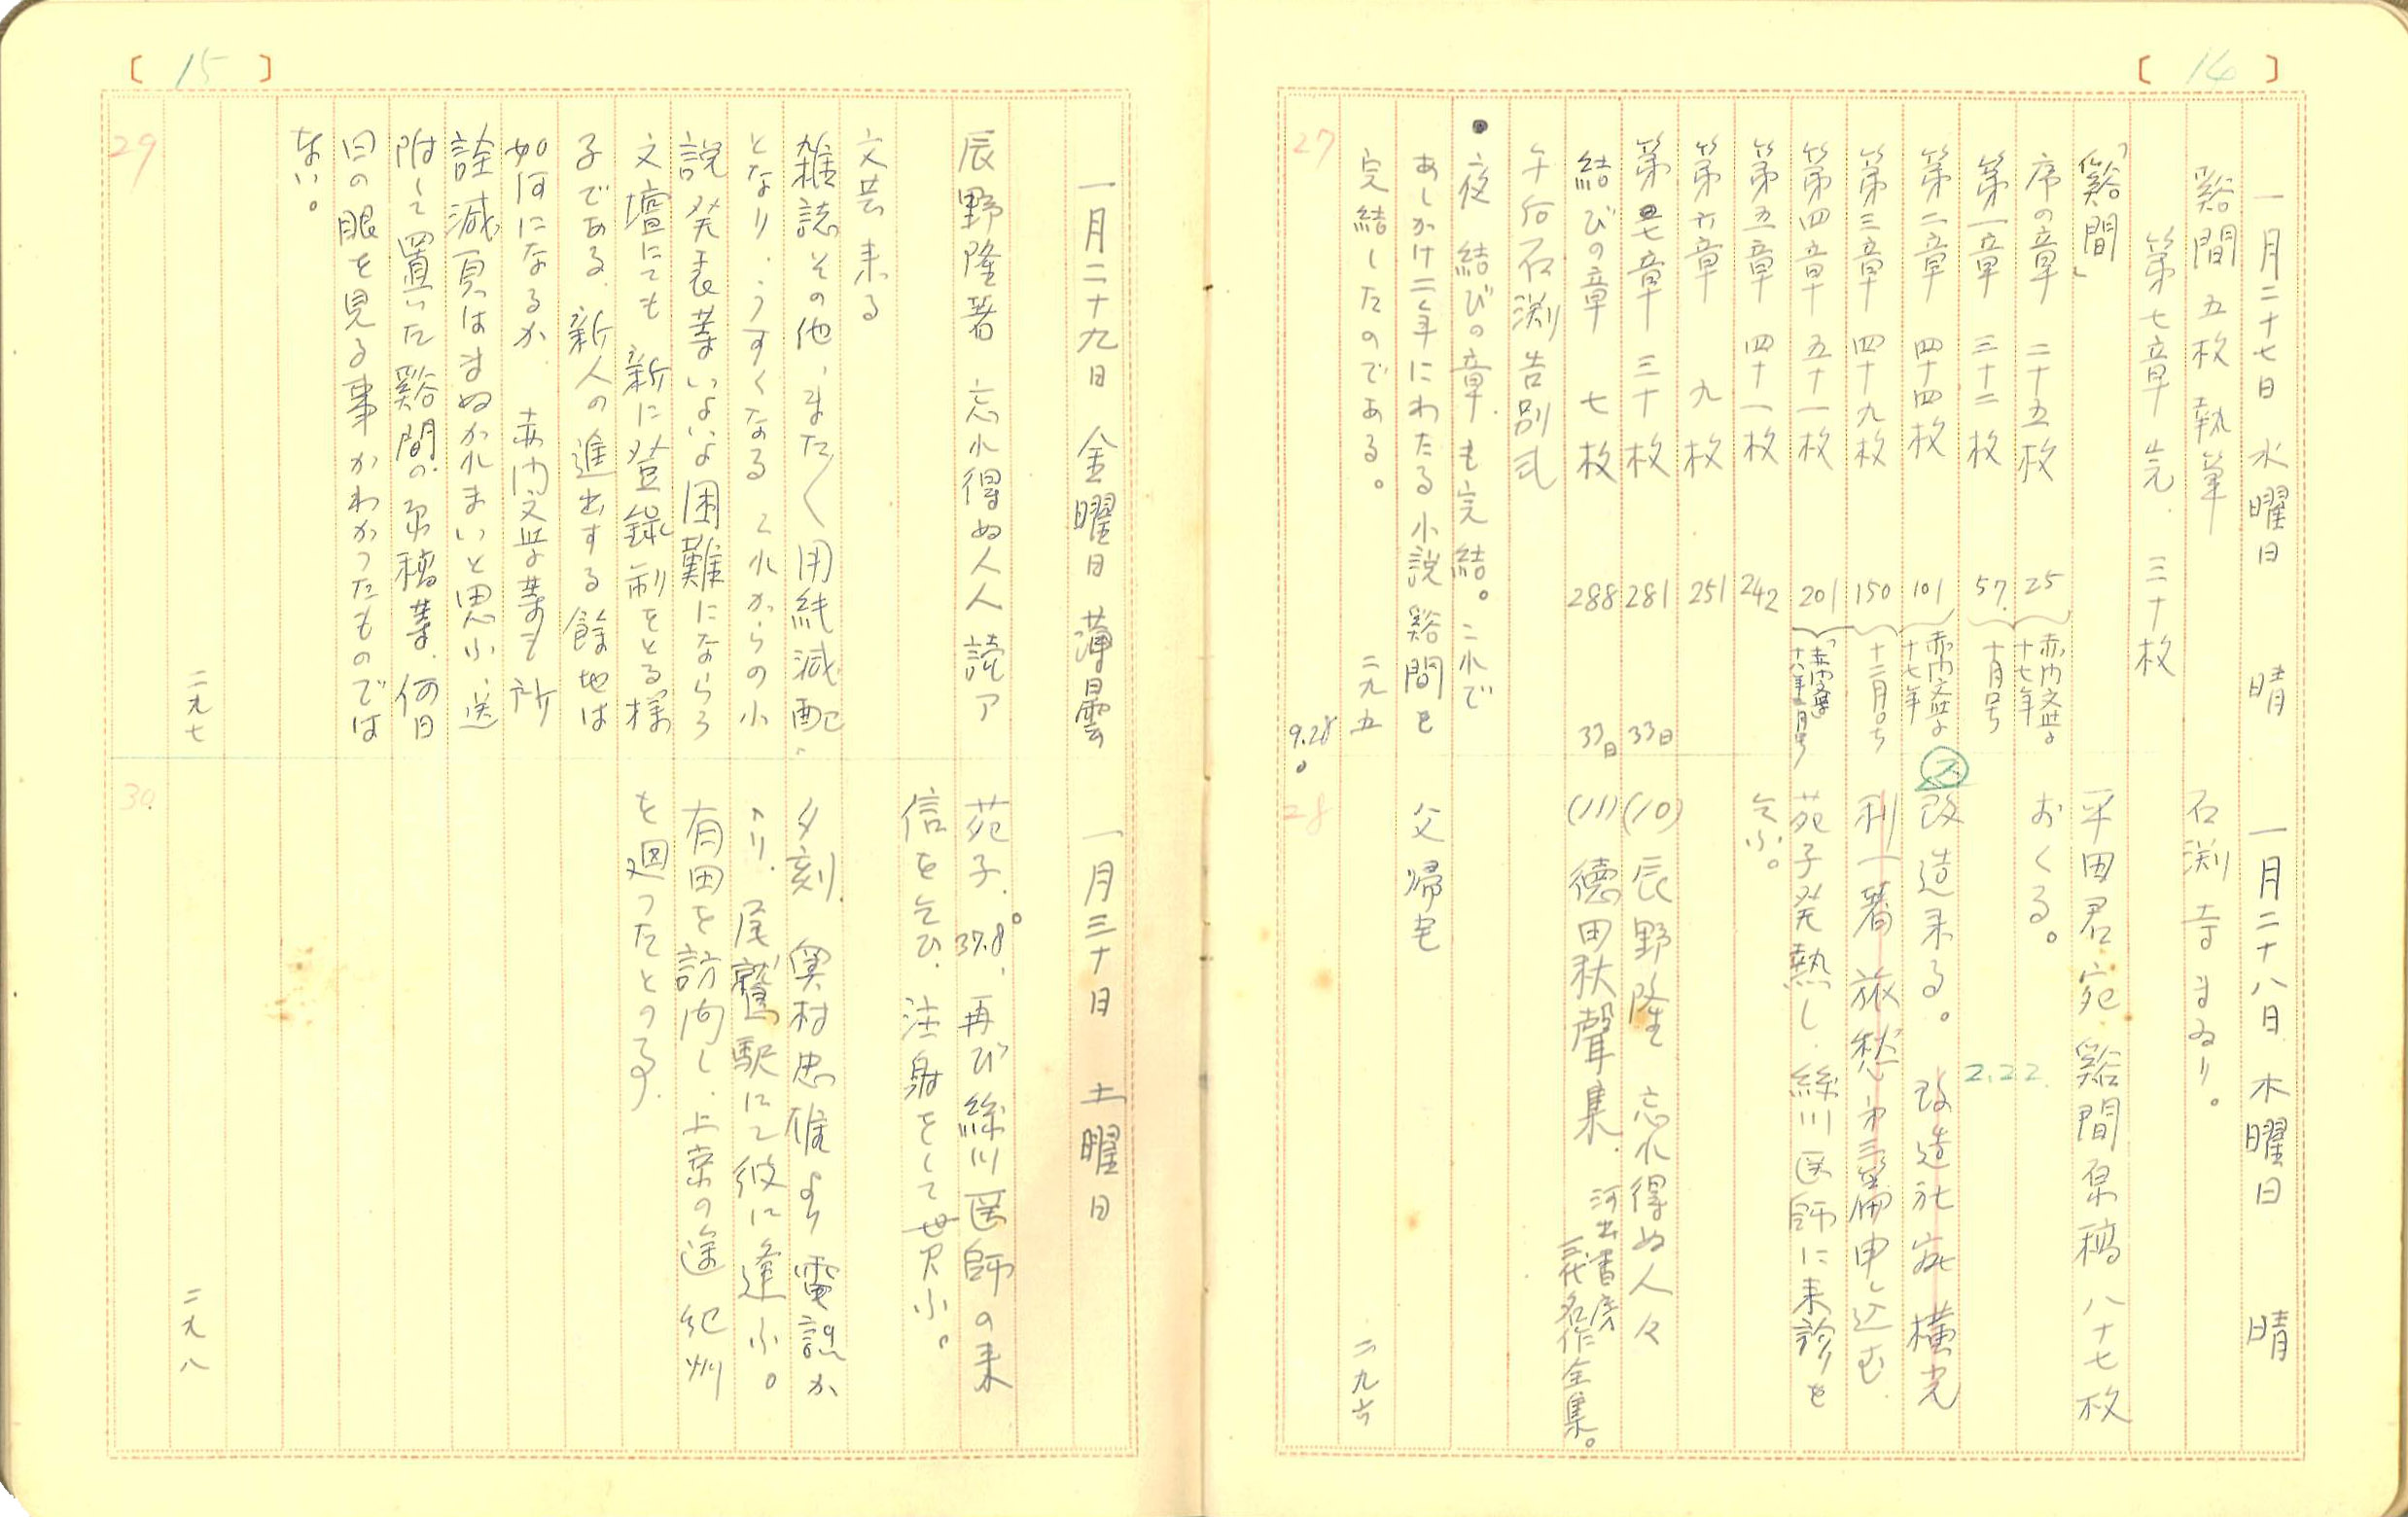 [ 14 ]
一月二十七日 水曜日 晴
谿間 五枚 執筆
第七章 完. 三十枚
「谿間」
序の章 二十五枚 25
第一章 三十二枚 57.
赤門文学 十七年 十月号
第二章 四十四枚 101
第三章 四十九枚 150
赤門文学 十七年 十二月号
第四章 五十一枚 201
「赤門文学」 十八年 月号
第五章 四十一枚 242
第六章 九枚 251
第七章 三十枚 281 33日
結びの章 七枚 288 33日
午后石渕告別式
●夜 結びの章.も完結。これで
あしかけ二年にわたる小説 谿間を
完結したのである。 二九五
27
9.28
一月二十八日 木曜日 晴
石渕 寺まゐり。
平田君宛 谿間原稿 八十七枚
おくる。
2.22.
改造来る。 改造社宛 横光
利一著 旅愁 第三篇申し込む.
苑子発熱し. 絲川医師に来診を
乞ふ。
(10) 辰野隆 忘れ得ぬ人々
(11) 徳田秋聲集. 河出書房 三代名作全集。
父 帰宅
二九六
28
[ 15 ]
一月二十九日 金曜日 薄曇
辰野隆著 忘れ得ぬ人人 読了
文芸来る
雑誌その他、また〱用紙減配、
となり、うすくなる これからの小
説発表等いよいよ困難にならう
文壇にても 新に登録制をとる様
子である. 新人の進出する餘地は
如何になるか 赤門文学等も所
詮減頁はまぬかれまいと思ふ、送
附して置いた谿間の原稿等、何日
日の眼を見る事かわかったものでは
ない。
二九七
29
一月三十日 土曜日
苑子. 37.8°、再び絲川医師の来
信を乞ひ. 注射をして貰ふ。
夕刻. 奥村忠 より電話か
ゝり. 尾鷲駅にて彼に逢ふ。
有田を訪問し. 上京の途 紀州
を廻ったとの事.
二九八
30.